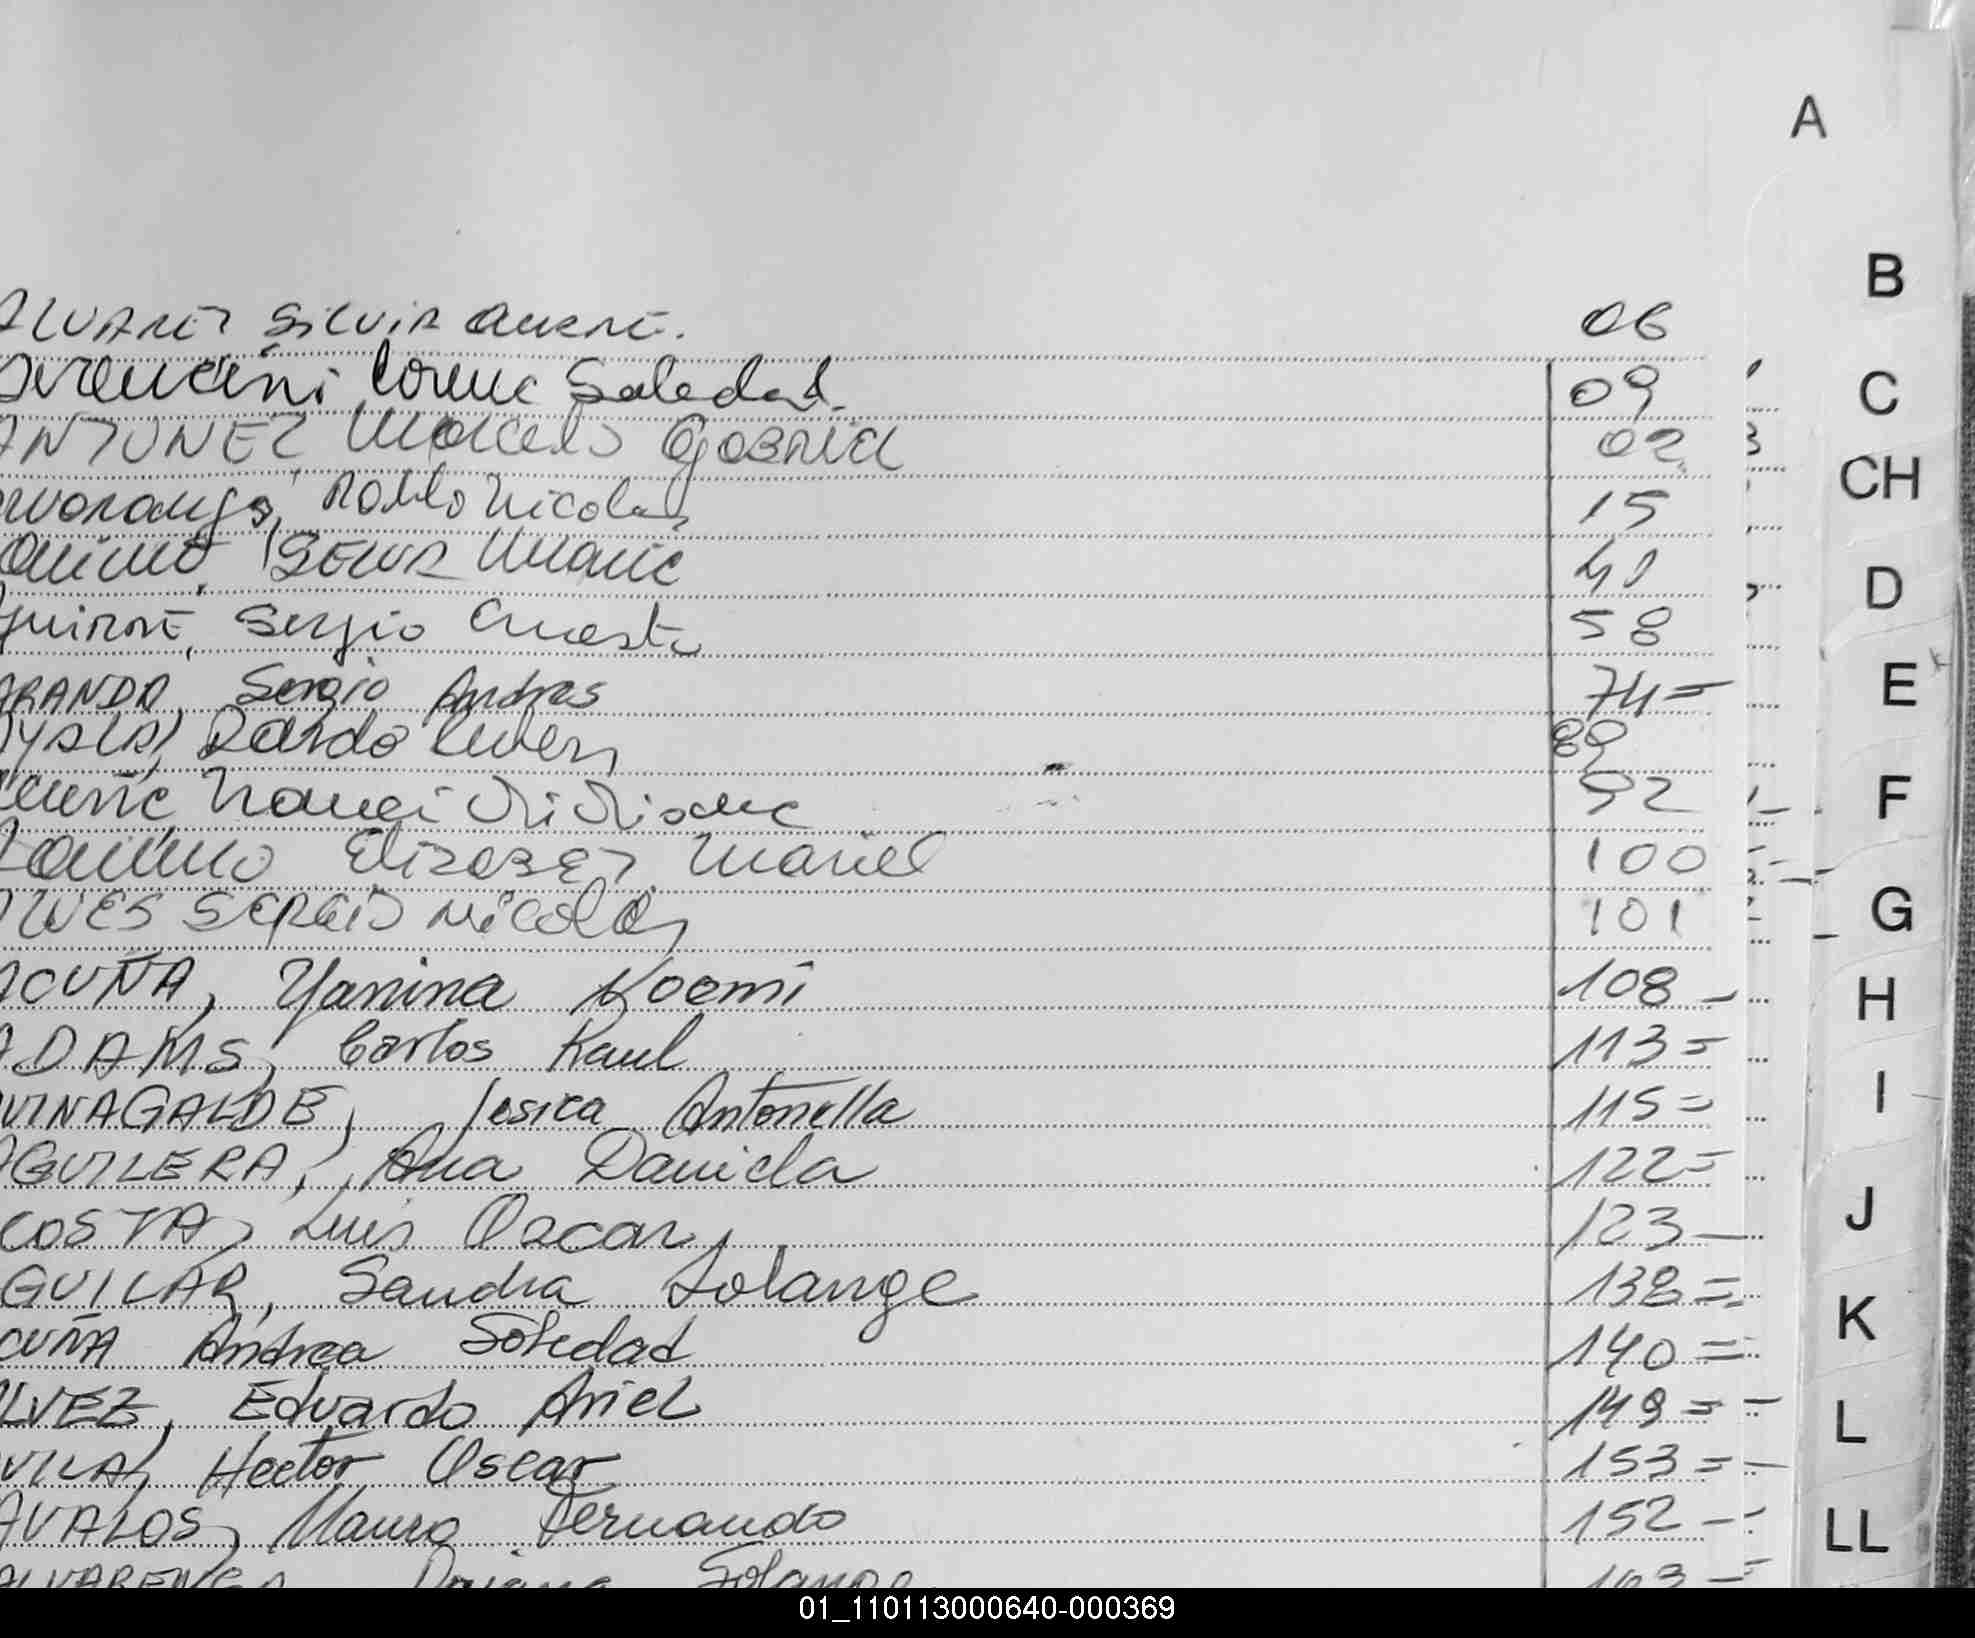 A
B
C
CH
D
E
F
G
H
I
J
K
L
LL
ALVAREZ Silvia 06
Soledad. 09
ANTUNEZ Marcelo Gabriel 02
Pablo Nicolas 15
Maria 40
Sergio Ernesto 58
ARANDA, Sergio Andres 74=
AYALA, Dardo Ruben 89
Viviana 92
Elizabet Mariel 100
ALVES SERGIO Nicolas 101
ACUÑA, Yanina Noemi 108 -
ADAMS, Carlos Raul 113=
VINAGALDE, Jesica Antonella 115=
AGUILERA, Ana Daniela 122=
COSTA, Luis Oscar 123 -
GUILAR, Sandra Solange 138=
CUÑA Andrea Soledad 140=
LVEZ, Eduardo Ariel 149=
VILA, Hector Oscar 153=
AVALOS, Mauro Fernando 152 -
ALVARENGA Solange 163 -
01_110113000640-000369